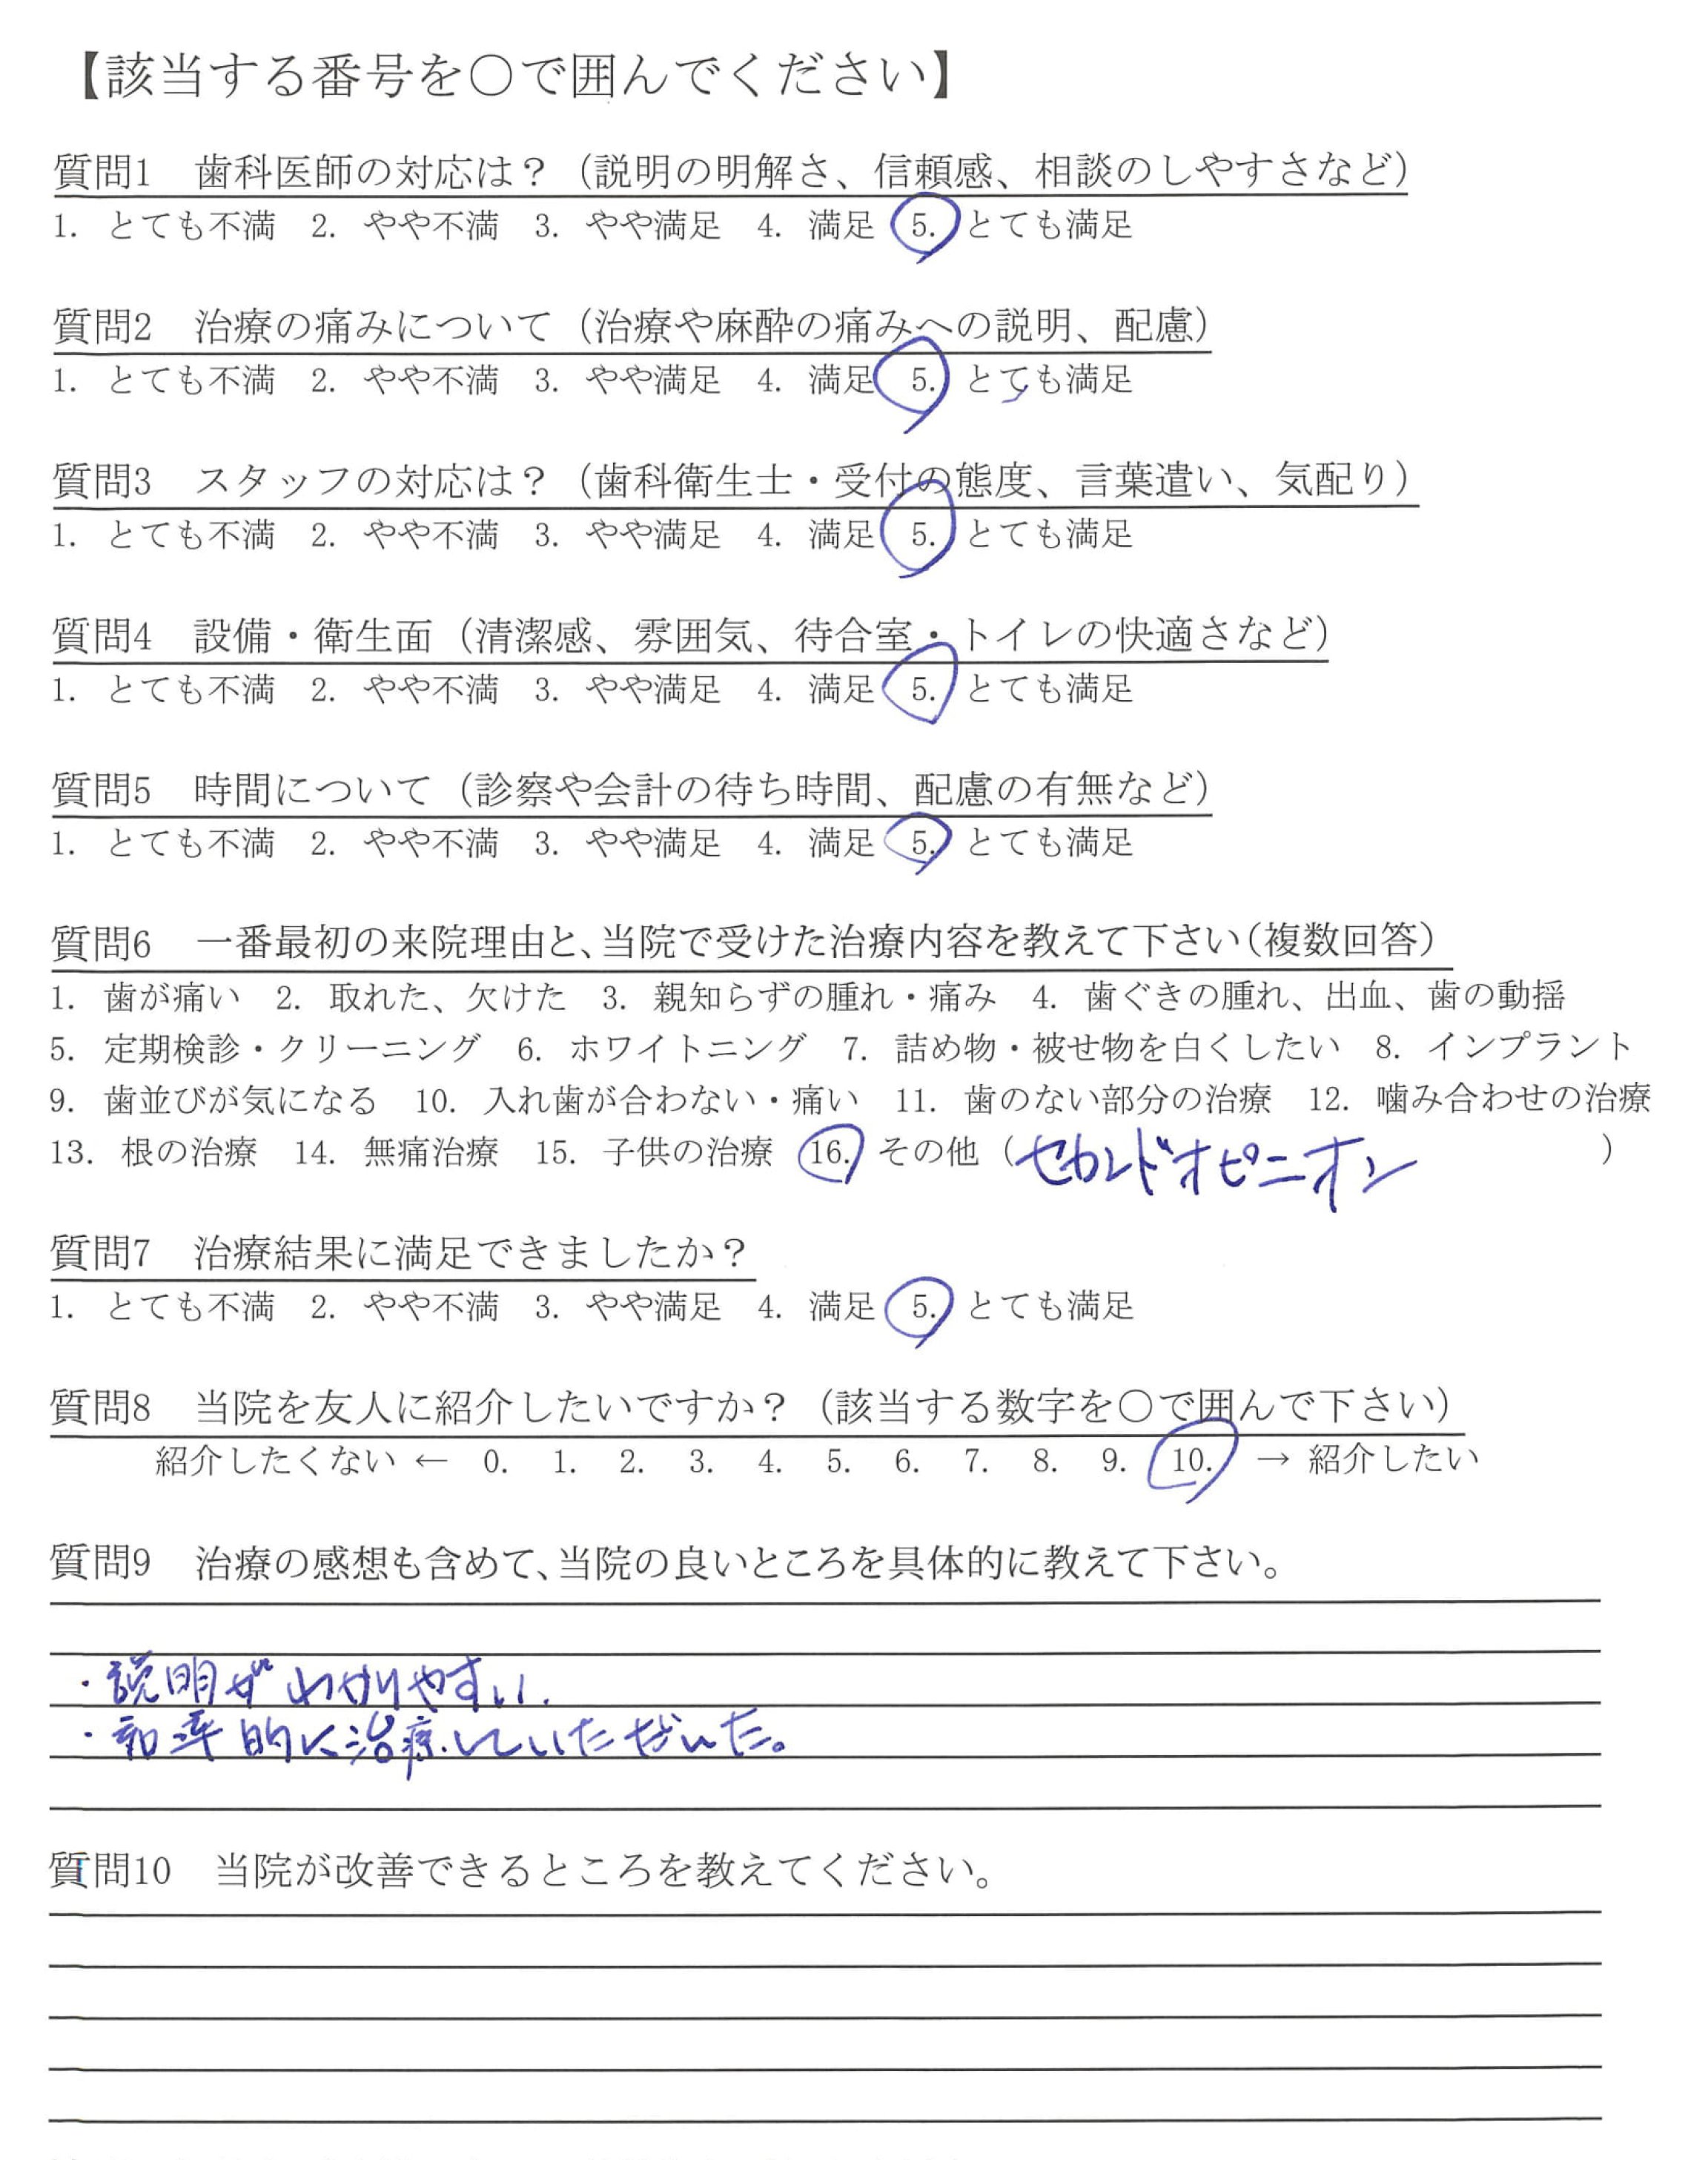 【該当する番号を○で囲んでください】
質問1　歯科医師の対応は？（説明の明解さ、信頼感、相談のしやすさなど）
1. とても不満　2. やや不満　3. やや満足　4. 満足　5. とても満足
質問2　治療の痛みについて（治療や麻酔の痛みへの説明、配慮）
1. とても不満　2. やや不満　3. やや満足　4. 満足　5. とても満足
質問3　スタッフの対応は？（歯科衛生士・受付の態度、言葉遣い、気配り）
1. とても不満　2. やや不満　3. やや満足　4. 満足　5. とても満足
質問4　設備・衛生面（清潔感、雰囲気、待合室・トイレの快適さなど）
1. とても不満　2. やや不満　3. やや満足　4. 満足　5. とても満足
質問5　時間について（診察や会計の待ち時間、配慮の有無など）
1. とても不満　2. やや不満　3. やや満足　4. 満足　5. とても満足
質問6　一番最初の来院理由と、当院で受けた治療内容を教えて下さい（複数回答）
1. 歯が痛い　2. 取れた、欠けた　3. 親知らずの腫れ・痛み　4. 歯ぐきの腫れ、出血、歯の動揺
5. 定期検診・クリーニング　6. ホワイトニング　7. 詰め物・被せ物を白くしたい　8. インプラント
9. 歯並びが気になる　10. 入れ歯が合わない・痛い　11. 歯のない部分の治療　12. 噛み合わせの治療
13. 根の治療　14. 無痛治療　15. 子供の治療　16. その他（セカンドオピニオン　　　　）
質問7　治療結果に満足できましたか？
1. とても不満　2. やや不満　3. やや満足　4. 満足　5. とても満足
質問8　当院を友人に紹介したいですか？（該当する数字を○で囲んで下さい）
紹介したくない ← 0. 1. 2. 3. 4. 5. 6. 7. 8. 9. 10. → 紹介したい
質問9　治療の感想も含めて、当院の良いところを具体的に教えて下さい。
・説明がわかりやすい.
・的に治療していただいた。
質問10　当院が改善できるところを教えてください。